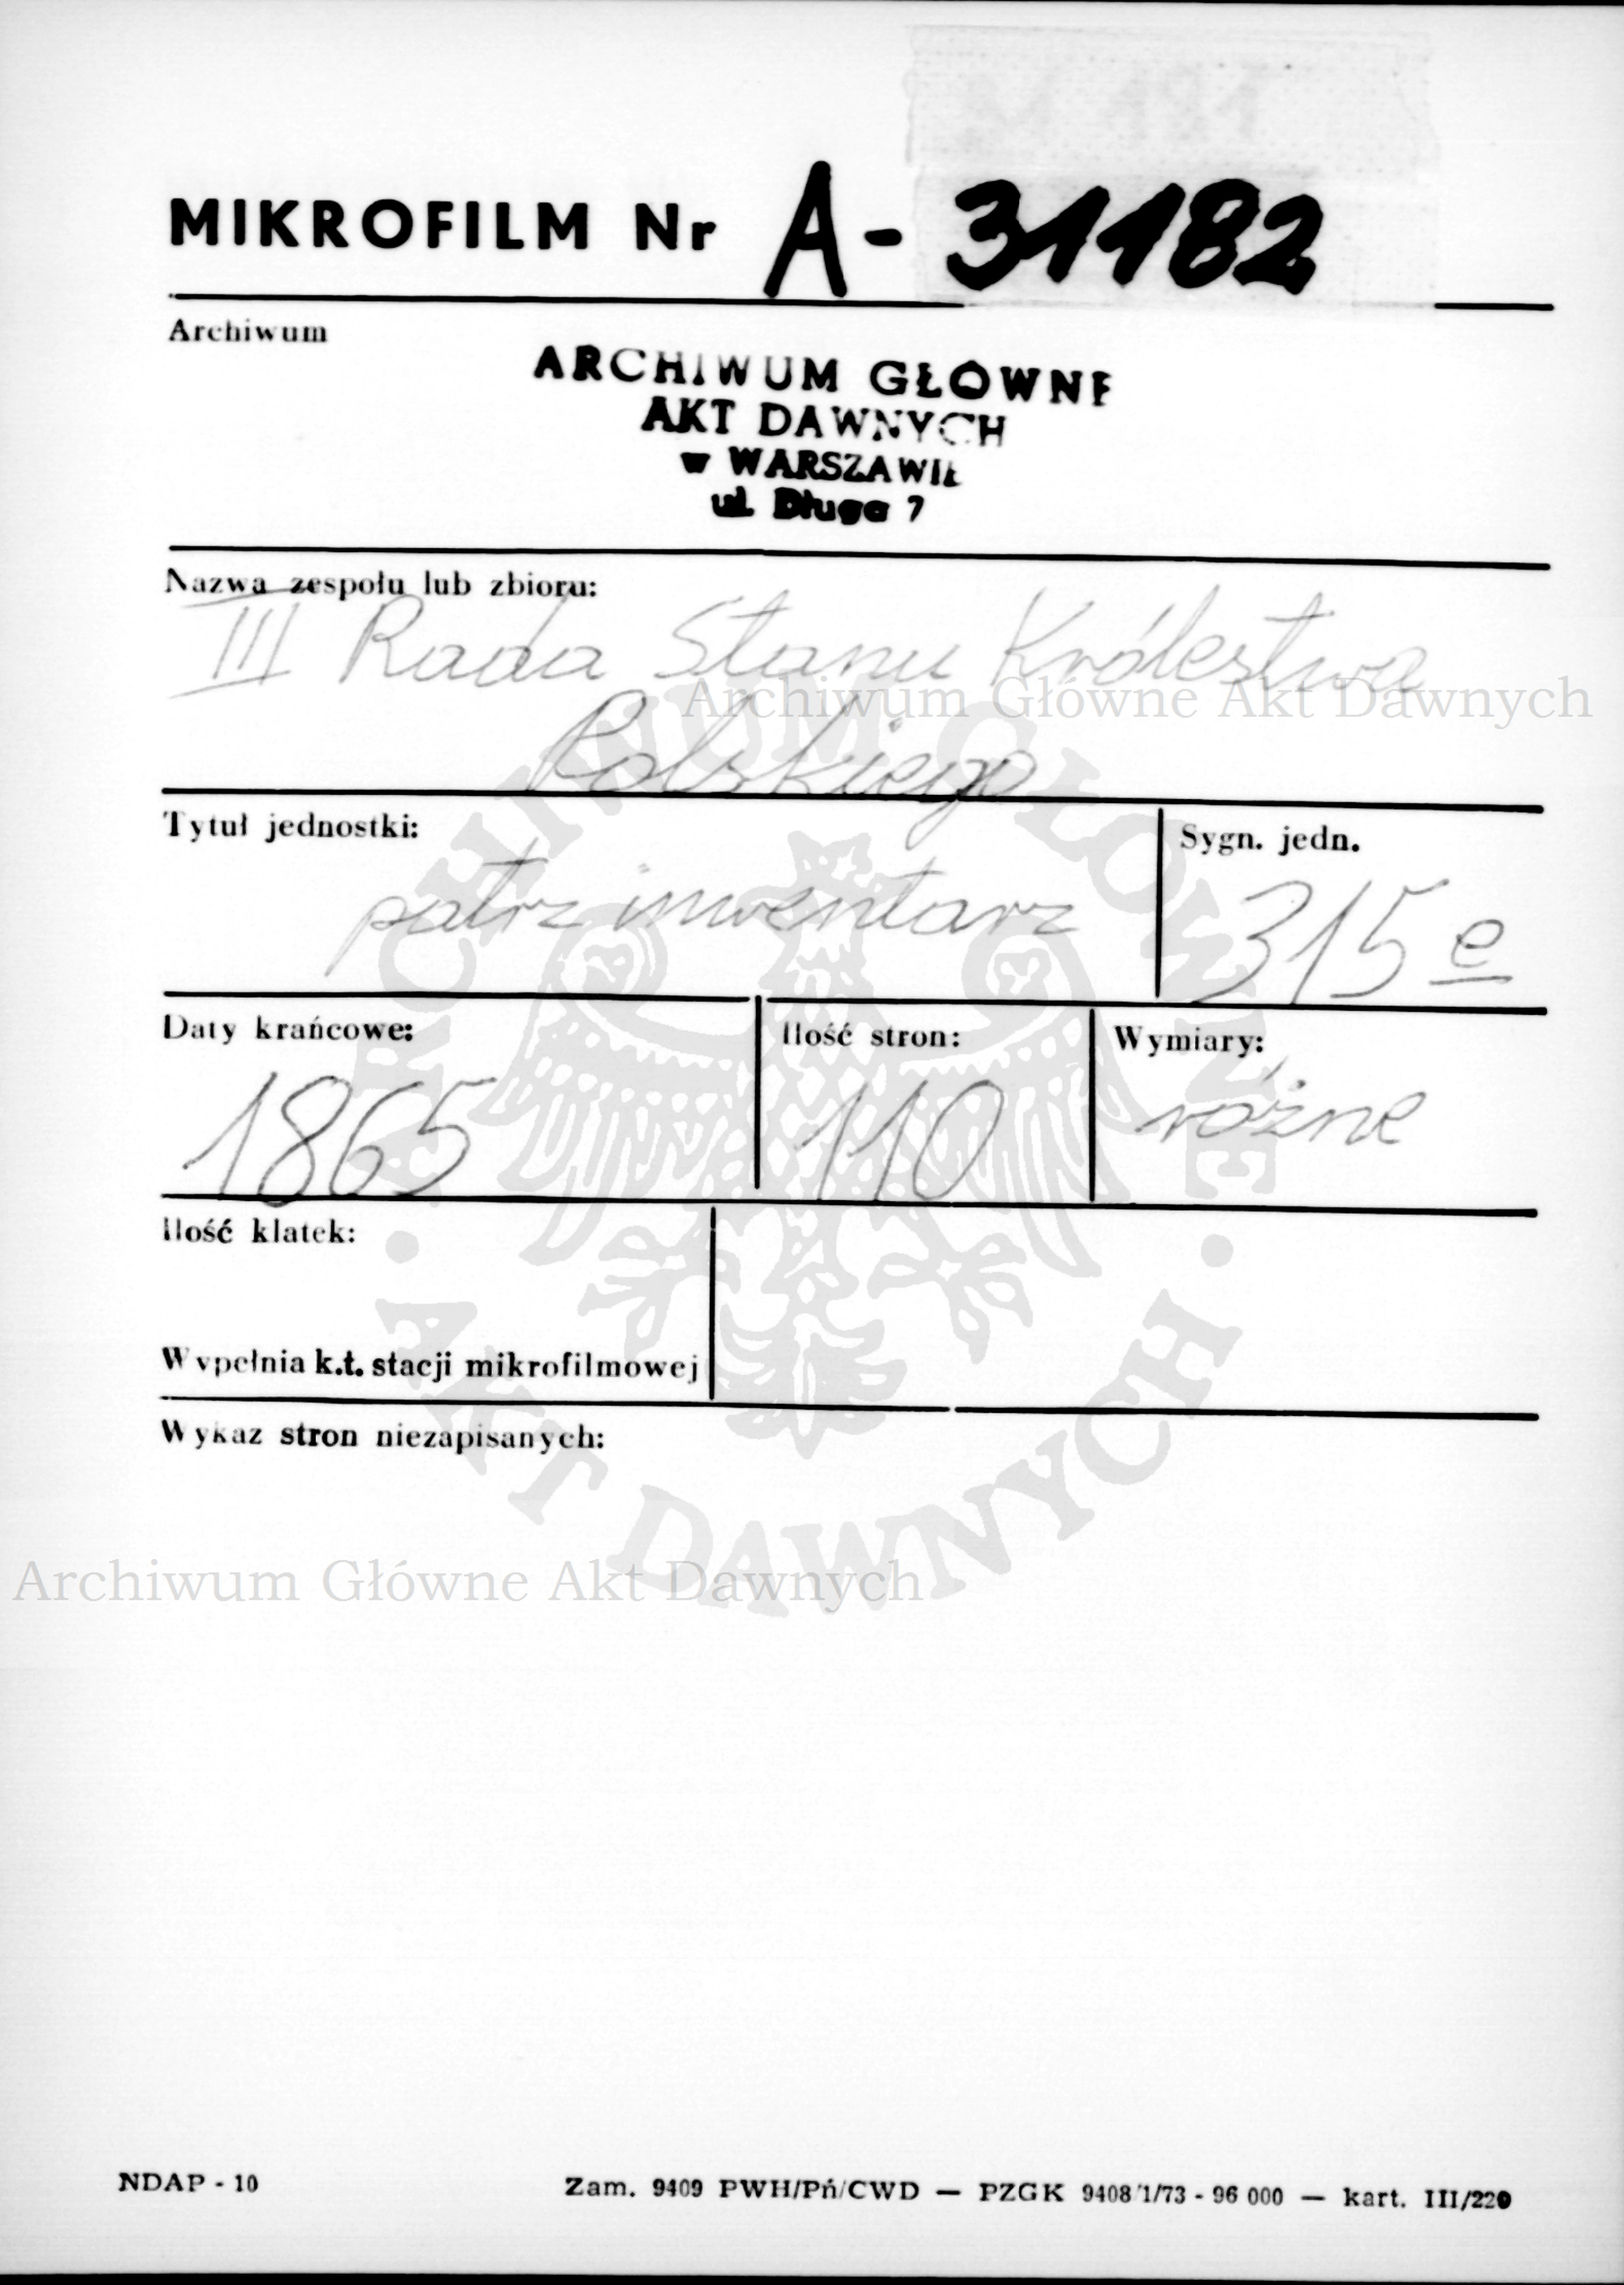 MIKROFILM Nr A-31182
Archiwum
ARCHIWUM GŁÓWNE
AKT DAWNYCH
w WARSZAWIE
ul. Długa 7
Nazwa zespołu lub zbioru:
III Rada Stanu Królestwa
Archiwum Główne Akt Dawnych
Polskiego
Tytuł jednostki:
patrz inwentarz
Sygn. jedn.
315 e
Daty krańcowe:
1865
Ilość stron:
110
Wymiary:
różne
Ilość klatek:
Wypełnia k.t. stacji mikrofilmowej
Wykaz stron niezapisanych:
ARCHIWUM GŁÓWNE
· AKT DAWNYCH ·
Archiwum Główne Akt Dawnych
NDAP - 10
Zam. 9409 PWH/Pń/CWD — PZGK 9408/1/73 - 96 000 — kart. III/220